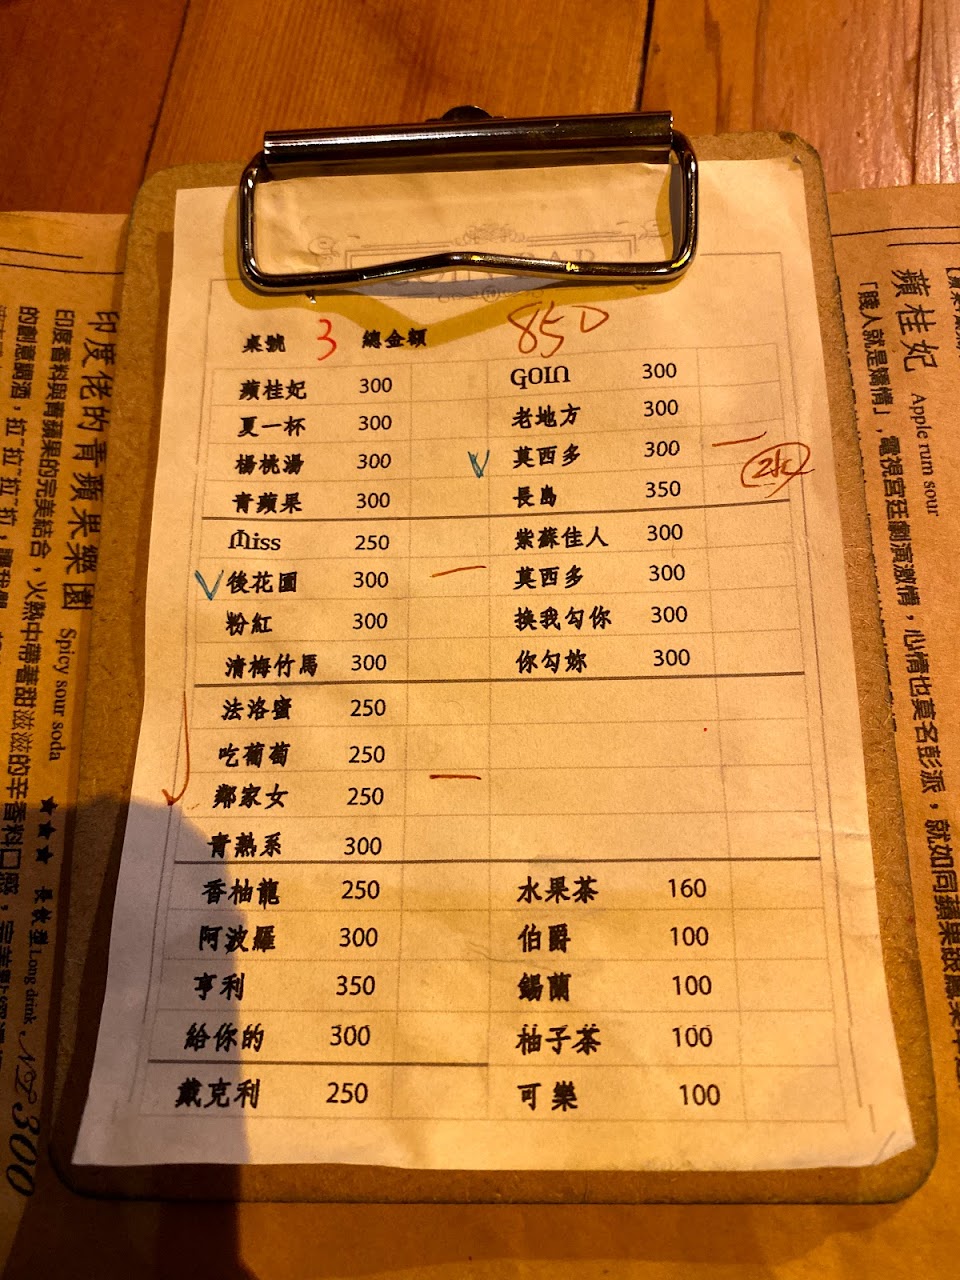 桌號 3 總金額 850
蘋桂妃 300 GOIN 300
夏一杯 300 老地方 300
楊桃湯 300 莫西多 300 一 水
青蘋果 300 長島 350
Miss 250 紫蘇佳人 300
後花園 300 一 莫西多 300
粉紅 300 換我勾你 300
清梅竹馬 300 你勾妳 300
法洛蜜 250
吃葡萄 250
鄰家女 250 一
青熟系 300
香柚龍 250 水果茶 160
阿波羅 300 伯爵 100
亨利 350 錫蘭 100
給你的 300 柚子茶 100
戴克利 250 可樂 100
蘋桂妃 Apple rum sour
「賤人就是矯情」,電視宮廷劇演激情,心情也莫名彭派,就如同蘋果跟
印度佬的青蘋果樂園 Spicy sour soda
★★★ 長飲型 Long drink, NT 300
印度香料與青蘋果的完美結合,火熱中帶著甜滋滋的辛香料口感,
的創意調酒,拉~拉~拉~拉,